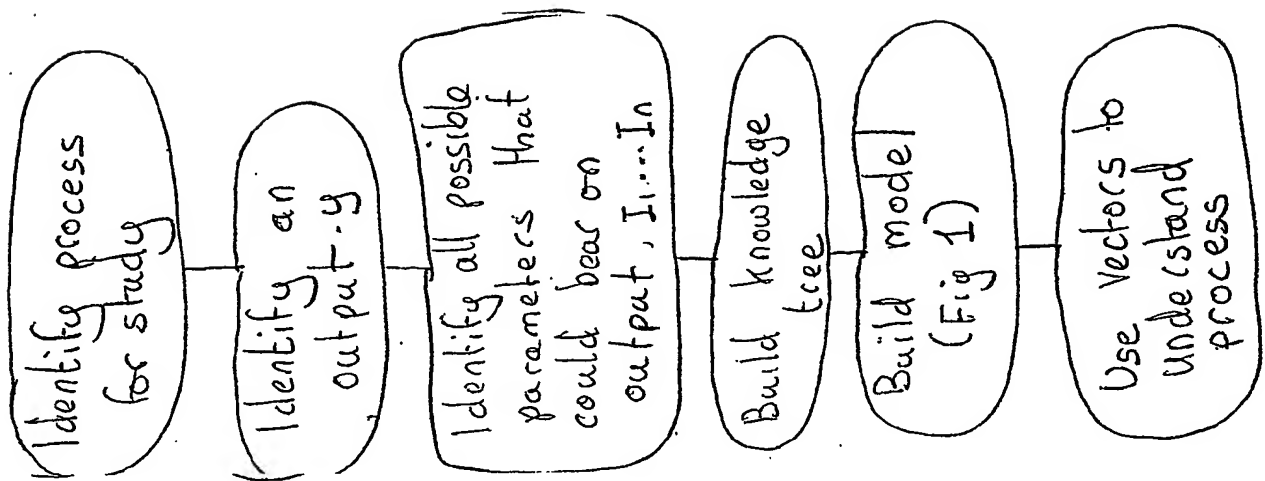 Identify process
for study
Identify an
output.y
Identify all possible
parameters that
could bear on
output, I1....In
Build knowledge
tree
Build model
(Fig 1)
Use vectors to
understand
process